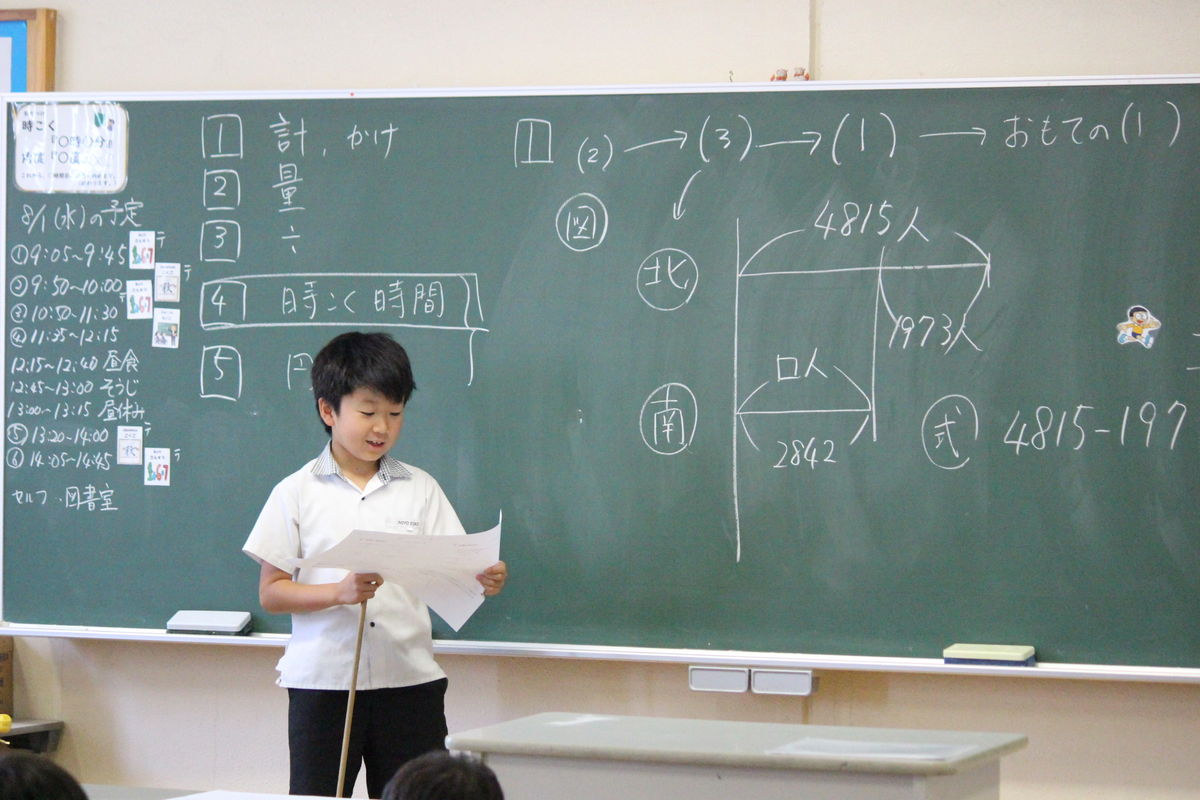 時こく
『〇時〇分』
8/1(水)の予定
①9:05~9:45
②9:50~10:00
③10:50~11:30
④11:35~12:15
12:15~12:40 昼食
12:45~13:00 そうじ
13:00~13:15 昼休み
⑤13:20~14:00
⑥14:05~14:45
セルフ・図書室
1 計、かけ
2 量
3 ÷
4 時こく時間
5 円
1 (2)→(3)→(1)→おもての(1)
図
4815人
北
1973人
口人
南
2842
式 4815-197